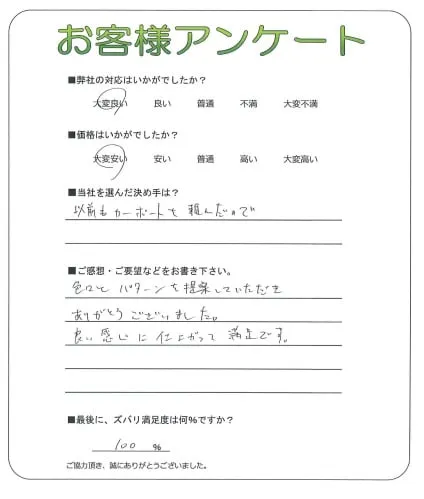 お客様アンケート
■弊社の対応はいかがでしたか？
大変良い 良い 普通 不満 大変不満
■価格はいかがでしたか？
大変安い 安い 普通 高い 大変高い
■当社を選んだ決め手は？
以前もカーポートを頼んだので
■ご感想・ご要望などをお書き下さい。
色々とパターンを提案していただき
ありがとうございました。
良い感じに仕上がって満足です。
■最後に、ズバリ満足度は何％ですか？
100 ％
ご協力頂き、誠にありがとうございました。